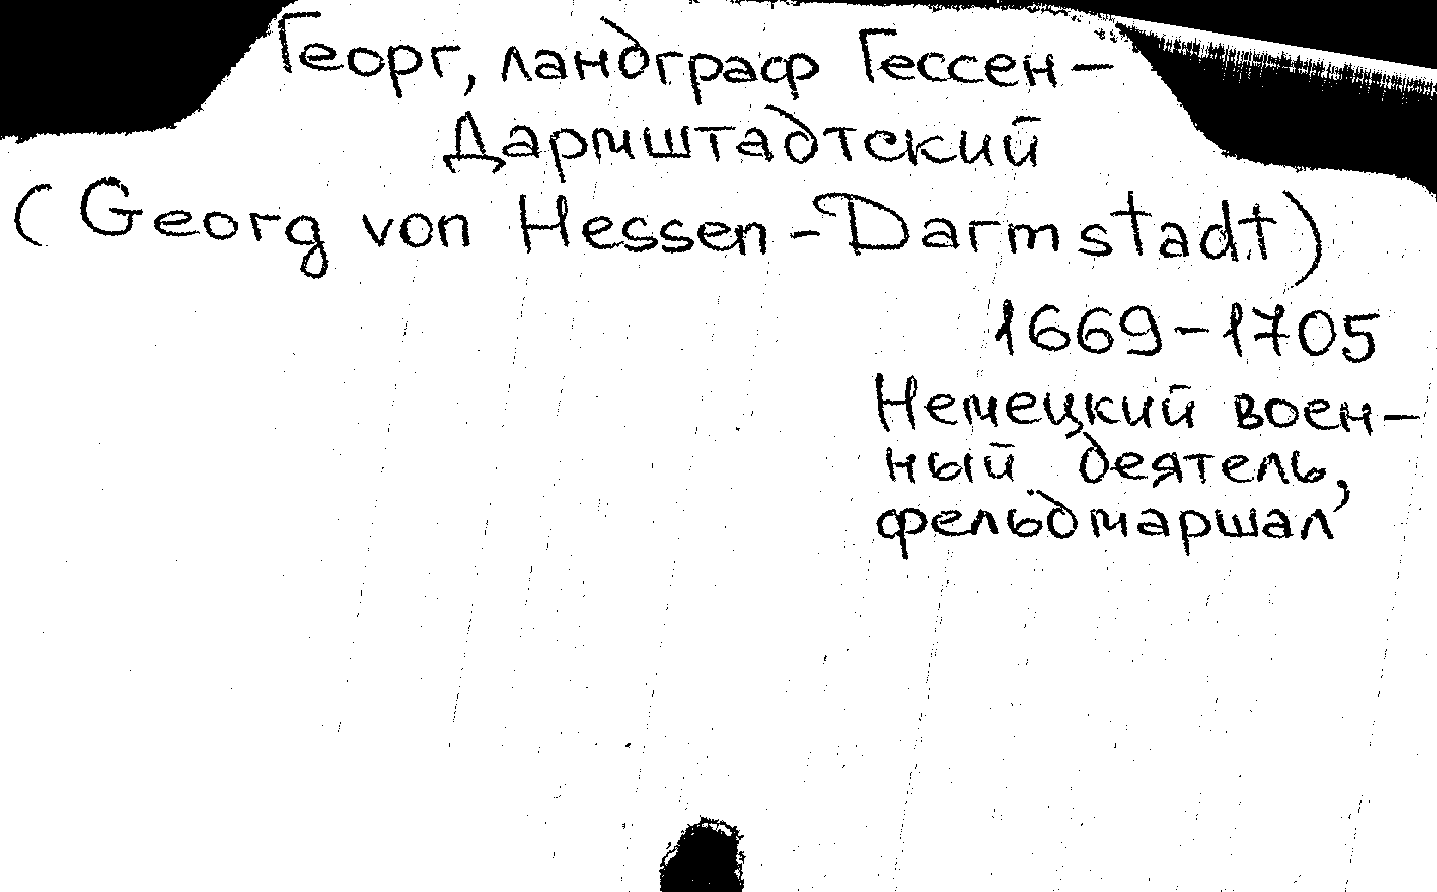 Георг, ландграф Гессен-
Дармштадтский
(Georg von Hessen-Darmstadt)
1669-1705
Немецкий воен-
ный деятель,
фельдмаршал